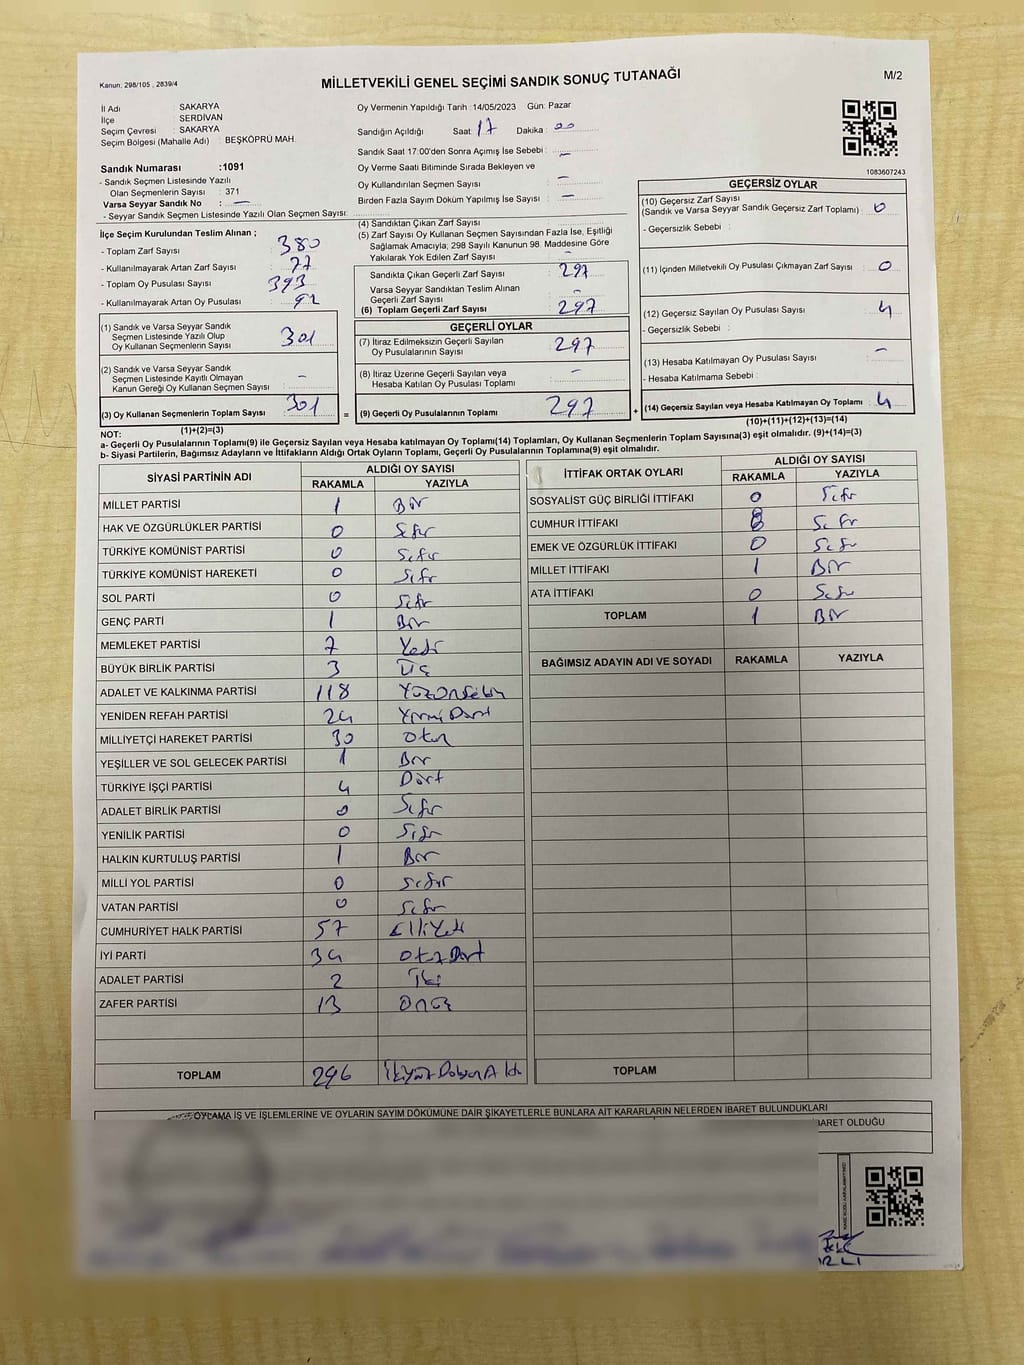 Kanun: 298/105 , 2839/4
MİLLETVEKİLİ GENEL SEÇİMİ SANDIK SONUÇ TUTANAĞI
M/2
İl Adı : SAKARYA
İlçe : SERDİVAN
Seçim Çevresi : SAKARYA
Seçim Bölgesi (Mahalle Adı) : BEŞKÖPRÜ MAH.
Sandık Numarası :1091
- Sandık Seçmen Listesinde Yazılı
Olan Seçmenlerin Sayısı : 371
Varsa Seyyar Sandık No : —
- Seyyar Sandık Seçmen Listesinde Yazılı Olan Seçmen Sayısı:
Oy Vermenin Yapıldığı Tarih :14/05/2023 Gün: Pazar
Sandığın Açıldığı Saat: 17 Dakika : 00
Sandık Saat 17:00'den Sonra Açımış İse Sebebi : –
Oy Verme Saati Bitiminde Sırada Bekleyen ve
Oy Kullandırılan Seçmen Sayısı : –
Birden Fazla Sayım Döküm Yapılmış İse Sayısı : –
1083607243
İlçe Seçim Kurulundan Teslim Alınan ;
- Toplam Zarf Sayısı : 380
- Kullanılmayarak Artan Zarf Sayısı : 77
- Toplam Oy Pusulası Sayısı : 393
- Kullanılmayarak Artan Oy Pusulası : 92
(1) Sandık ve Varsa Seyyar Sandık
Seçmen Listesinde Yazılı Olup
Oy Kullanan Seçmenlerin Sayısı : 301
(2) Sandık ve Varsa Seyyar Sandık
Seçmen Listesinde Kayıtlı Olmayan
Kanun Gereği Oy Kullanan Seçmen Sayısı : –
(3) Oy Kullanan Seçmenlerin Toplam Sayısı : 301
(1)+(2)=(3)
(4) Sandıktan Çıkan Zarf Sayısı :
(5) Zarf Sayısı Oy Kullanan Seçmen Sayısından Fazla İse, Eşitliği
Sağlamak Amacıyla; 298 Sayılı Kanunun 98. Maddesine Göre
Yakılarak Yok Edilen Zarf Sayısı : –
Sandıkta Çıkan Geçerli Zarf Sayısı : 297
Varsa Seyyar Sandıktan Teslim Alınan
Geçerli Zarf Sayısı : –
(6) Toplam Geçerli Zarf Sayısı : 297
GEÇERLİ OYLAR
(7) İtiraz Edilmeksizin Geçerli Sayılan
Oy Pusulalarının Sayısı : 297
(8) İtiraz Üzerine Geçerli Sayılan veya
Hesaba Katılan Oy Pusulası Toplamı : –
= (9) Geçerli Oy Pusulalarının Toplamı : 297
GEÇERSİZ OYLAR
(10) Geçersiz Zarf Sayısı
(Sandık ve Varsa Seyyar Sandık Geçersiz Zarf Toplamı) : 0
- Geçersizlik Sebebi :
(11) İçinden Milletvekili Oy Pusulası Çıkmayan Zarf Sayısı : 0
(12) Geçersiz Sayılan Oy Pusulası Sayısı : 4
- Geçersizlik Sebebi :
(13) Hesaba Katılmayan Oy Pusulası Sayısı : –
- Hesaba Katılmama Sebebi :
+ (14) Geçersiz Sayılan veya Hesaba Katılmayan Oy Toplamı : 4
(10)+(11)+(12)+(13)=(14)
NOT:
a- Geçerli Oy Pusulalarının Toplamı(9) ile Geçersiz Sayılan veya Hesaba katılmayan Oy Toplamı(14) Toplamları, Oy Kullanan Seçmenlerin Toplam Sayısına(3) eşit olmalıdır. (9)+(14)=(3)
b- Siyasi Partilerin, Bağımsız Adayların ve İttifakların Aldığı Ortak Oyların Toplamı, Geçerli Oy Pusulalarının Toplamına(9) eşit olmalıdır.
SİYASİ PARTİNİN ADI ALDIĞI OY SAYISI
RAKAMLA YAZIYLA
MİLLET PARTİSİ 1 Bir
HAK VE ÖZGÜRLÜKLER PARTİSİ 0 Sıfır
TÜRKİYE KOMÜNİST PARTİSİ 0 Sıfır
TÜRKİYE KOMÜNİST HAREKETİ 0 Sıfır
SOL PARTİ 0 Sıfır
GENÇ PARTİ 1 Bir
MEMLEKET PARTİSİ 7 Yedi
BÜYÜK BİRLİK PARTİSİ 3 Üç
ADALET VE KALKINMA PARTİSİ 118 YüzOnSekiz
YENİDEN REFAH PARTİSİ 24 YirmiDört
MİLLİYETÇİ HAREKET PARTİSİ 30 Otuz
YEŞİLLER VE SOL GELECEK PARTİSİ 1 Bir
TÜRKİYE İŞÇİ PARTİSİ 4 Dört
ADALET BİRLİK PARTİSİ 0 Sıfır
YENİLİK PARTİSİ 0 Sıfır
HALKIN KURTULUŞ PARTİSİ 1 Bir
MİLLİ YOL PARTİSİ 0 Sıfır
VATAN PARTİSİ 0 Sıfır
CUMHURİYET HALK PARTİSİ 57 ElliYedi
İYİ PARTİ 34 OtuzDört
ADALET PARTİSİ 2 İki
ZAFER PARTİSİ 13 Onüç
TOPLAM 296 İkiyüzDoksanAltı
İTTİFAK ORTAK OYLARI ALDIĞI OY SAYISI
RAKAMLA YAZIYLA
SOSYALİST GÜÇ BİRLİĞİ İTTİFAKI 0 Sıfır
CUMHUR İTTİFAKI 0 Sıfır
EMEK VE ÖZGÜRLÜK İTTİFAKI 0 Sıfır
MİLLET İTTİFAKI 1 Bir
ATA İTTİFAKI 0 Sıfır
TOPLAM 1 Bir
BAĞIMSIZ ADAYIN ADI VE SOYADI RAKAMLA YAZIYLA
TOPLAM
OYLAMA İŞ VE İŞLEMLERİNE VE OYLARIN SAYIM DÖKÜMÜNE DAİR ŞİKAYETLERLE BUNLARA AİT KARARLARIN NELERDEN İBARET BULUNDUKLARI
BARET OLDUĞU